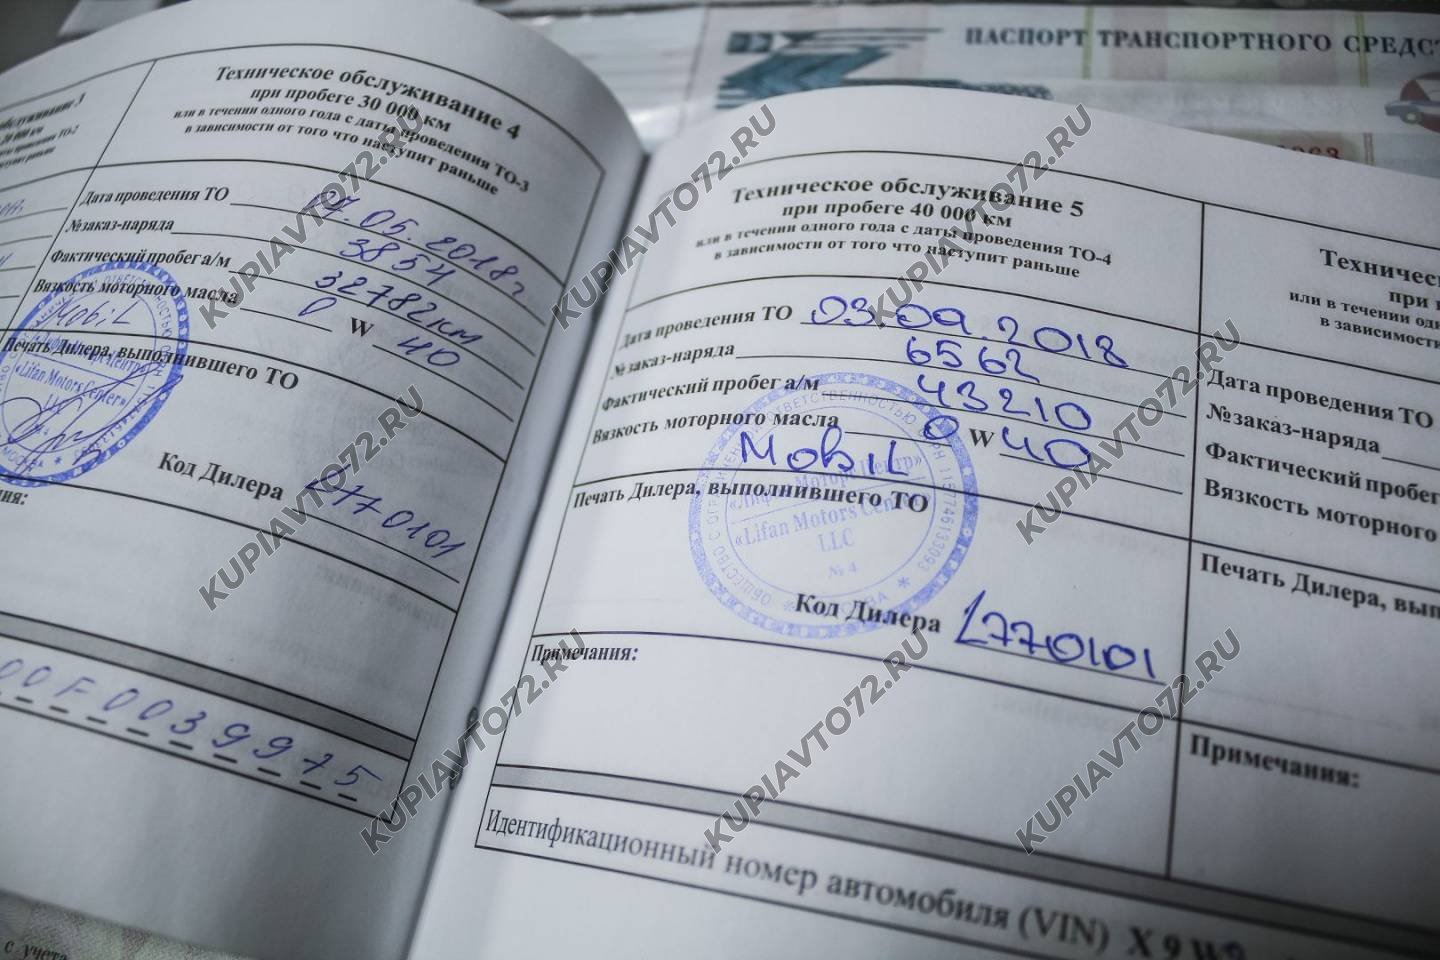 ПАСПОРТ ТРАНСПОРТНОГО СРЕДСТ
Техническое обслуживание 4
при пробеге 30 000 км
или в течении одного года с даты проведения ТО-3
в зависимости от того что наступит раньше
Дата проведения ТО 17.05.2018г
№заказ-наряда 3854
Фактический пробег а/м 32782км
Вязкость моторного масла 0 W 40
Mobil
Печать Дилера, выполнившего ТО
«Lifan Motors Center»
Код Дилера L770101
00F0039975
Техническое обслуживание 5
при пробеге 40 000 км
или в течении одного года с даты проведения ТО-4
в зависимости от того что наступит раньше
Дата проведения ТО 03.09.2018
№заказ-наряда 6562
Фактический пробег а/м 43210
Вязкость моторного масла 0 W 40
Mobil
Печать Дилера, выполнившего ТО
ОБЩЕСТВО С ОГРАНИЧЕННОЙ ОТВЕТСТВЕННОСТЬЮ ОГРН 1157746133093
«Лифан Моторс Центр»
«Lifan Motors Center»
LLC
№ 4
МОСКВА
Код Дилера L770101
Примечания:
Идентификационный номер автомобиля (VIN) X 9 W
Техничес
при
или в течении од
в зависимости
Дата проведения ТО
№заказ-наряда
Фактический пробег
Вязкость моторного
Печать Дилера, вып
Примечания:
с учета
KUPIAVTO72.RU
KUPIAVTO72.RU
KUPIAVTO72.RU
KUPIAVTO72.RU
KUPIAVTO72.RU
KUPIAVTO72.RU
KUPIAVTO72.RU
KUPIAVTO72.RU